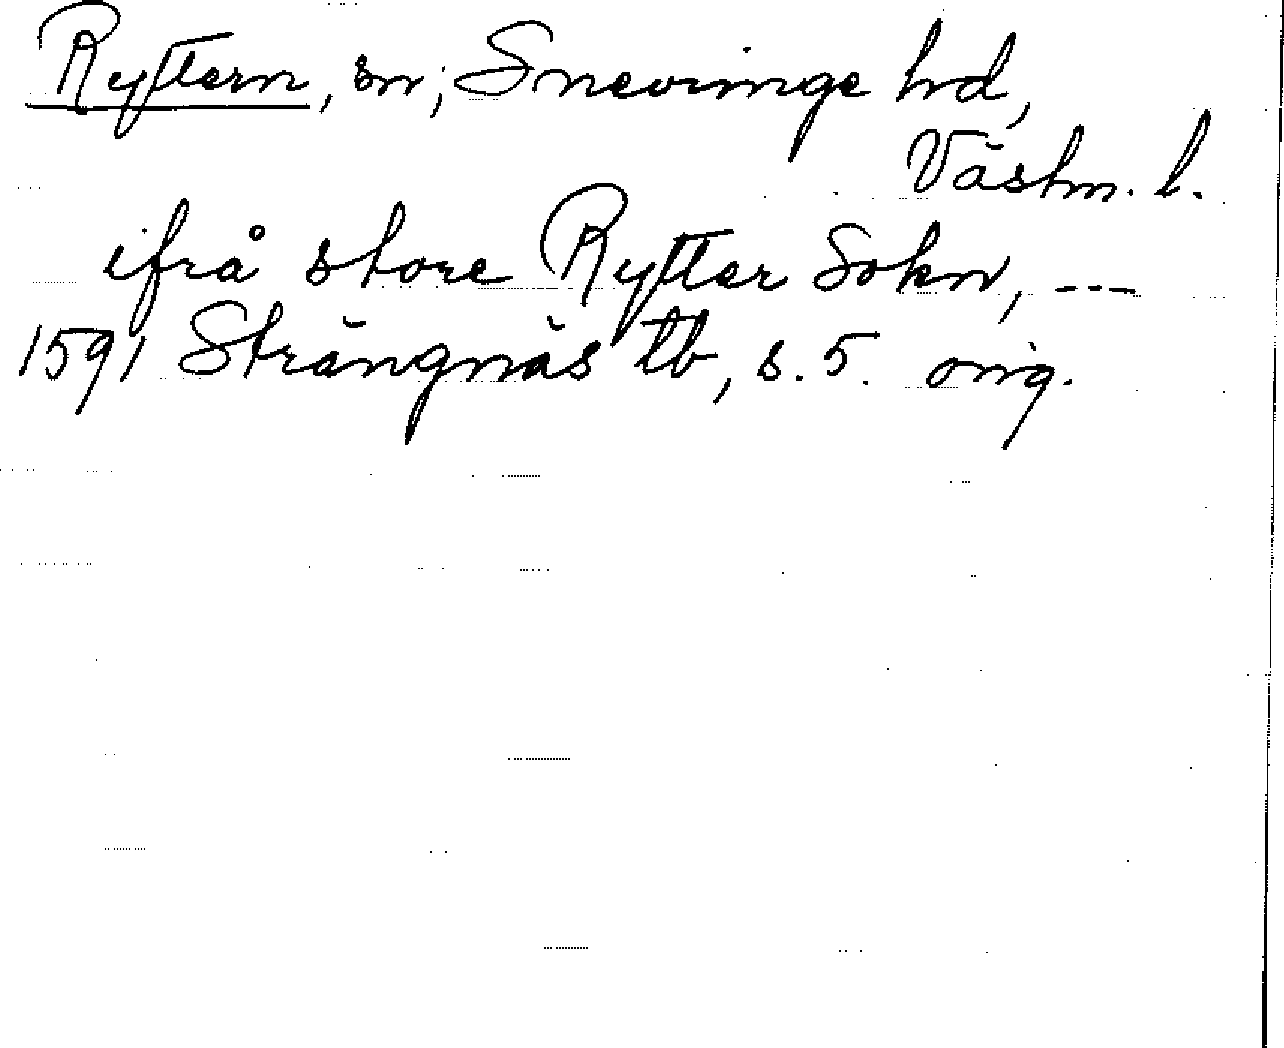 Ryttern, sn; Snevringe hd,
Västm. l.
ifrå store Rytter Sokn, ---
1591 Strängnäs tb, s. 5. orig.